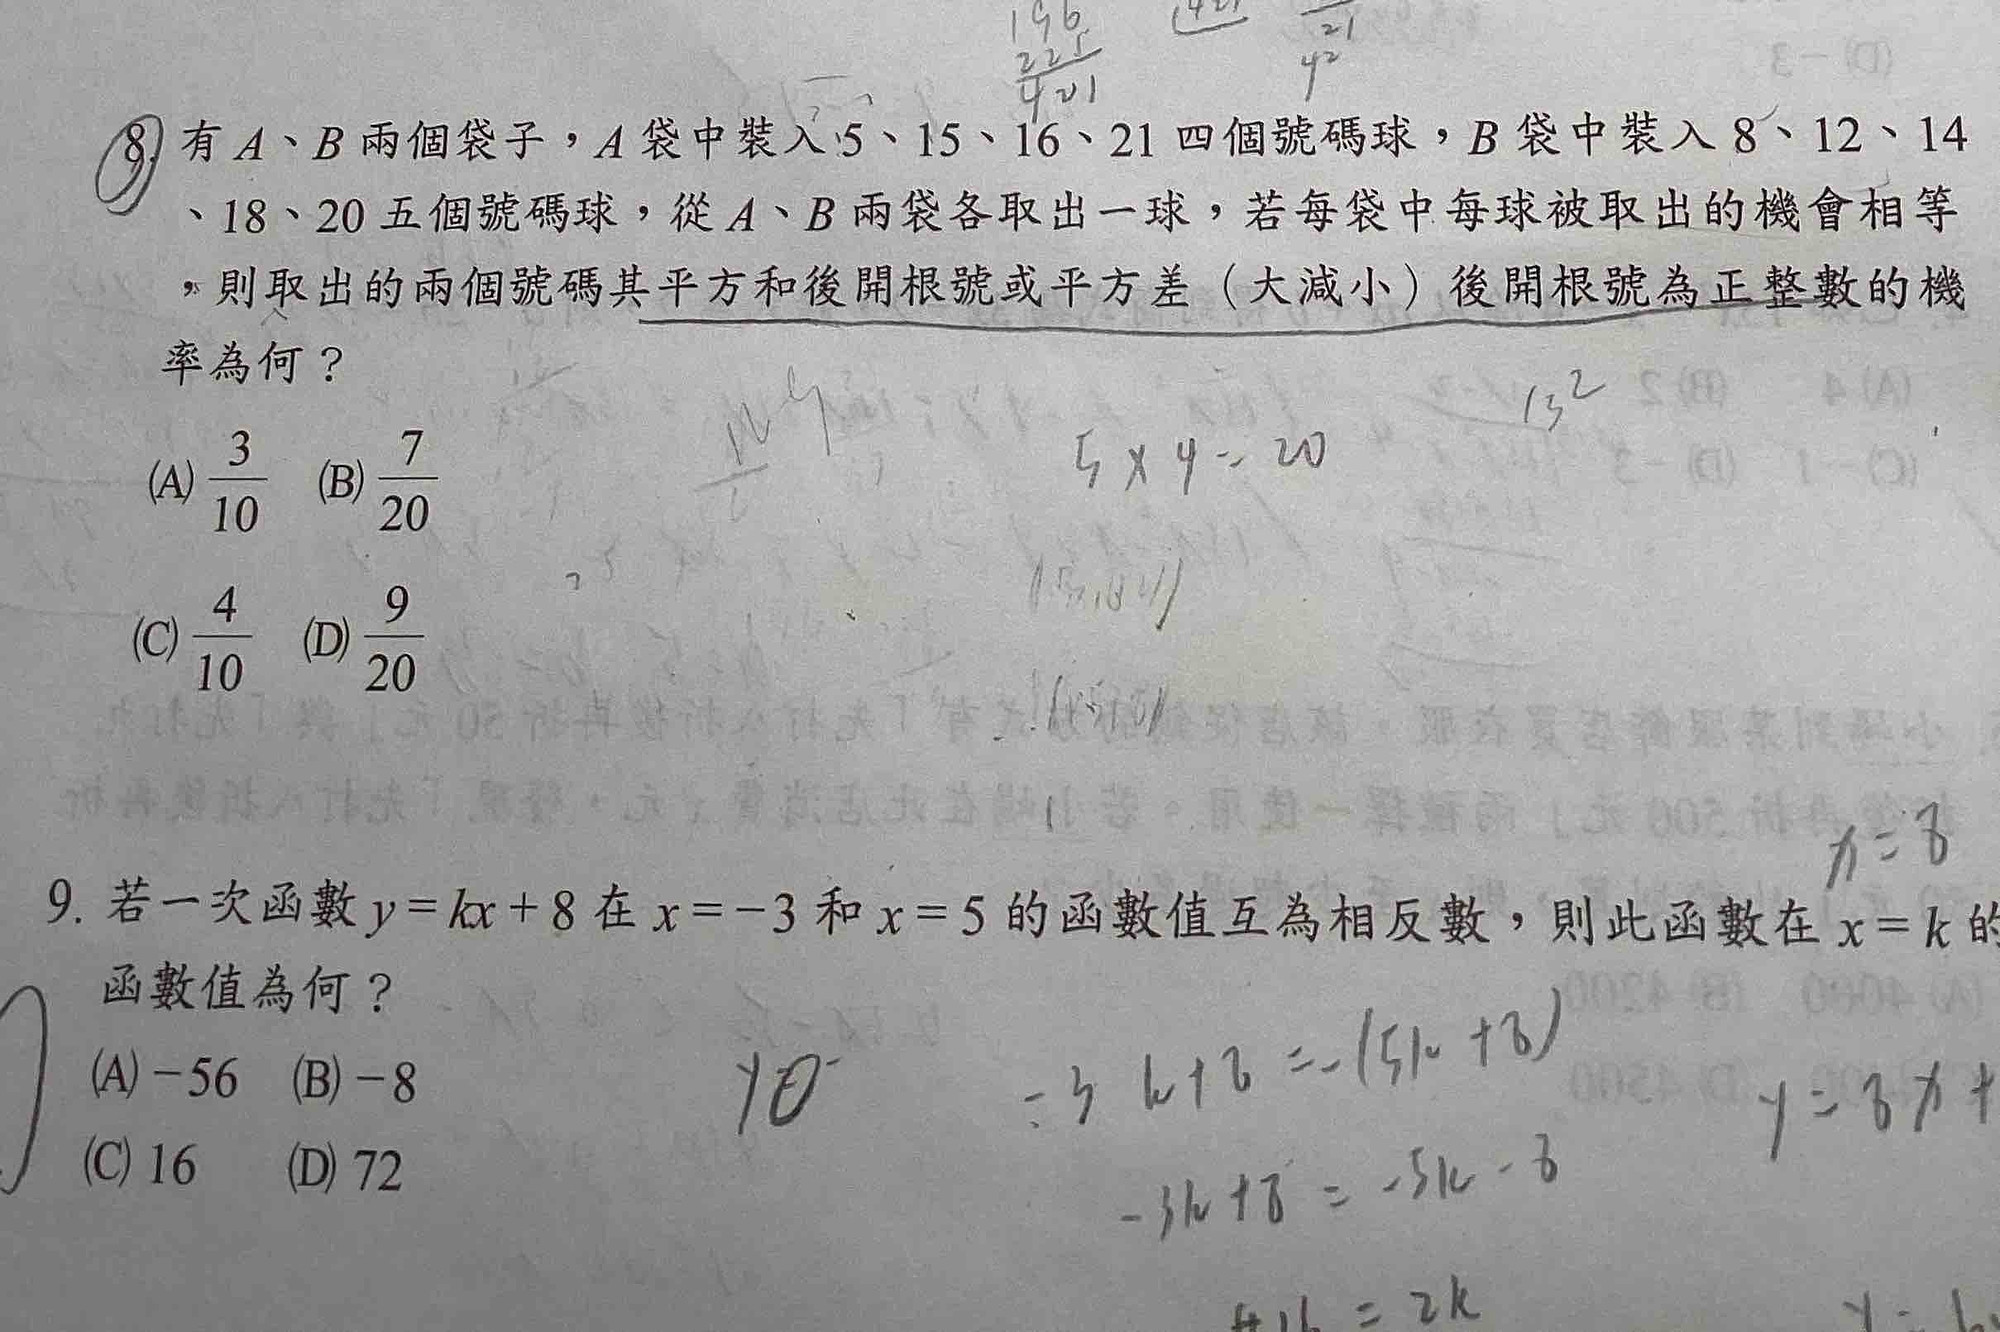 196
225
421
21
42
8. 有 A、B 兩個袋子，A 袋中裝入 5、15、16、21 四個號碼球，B 袋中裝入 8、12、14
、18、20 五個號碼球，從 A、B 兩袋各取出一球，若每袋中每球被取出的機會相等
，則取出的兩個號碼其平方和後開根號或平方差（大減小）後開根號為正整數的機
率為何？
13²
5 × 4 = 20
(A) 3/10 (B) 7/20
(C) 4/10 (D) 9/20
x = 8
9. 若一次函數 y = kx + 8 在 x = −3 和 x = 5 的函數值互為相反數，則此函數在 x = k 的
函數值為何？
(A) −56 (B) −8
(C) 16 (D) 72
-3k+8 = -(5k+8)
y = 8x+
-3k+8 = -5k-8
16 = 2k